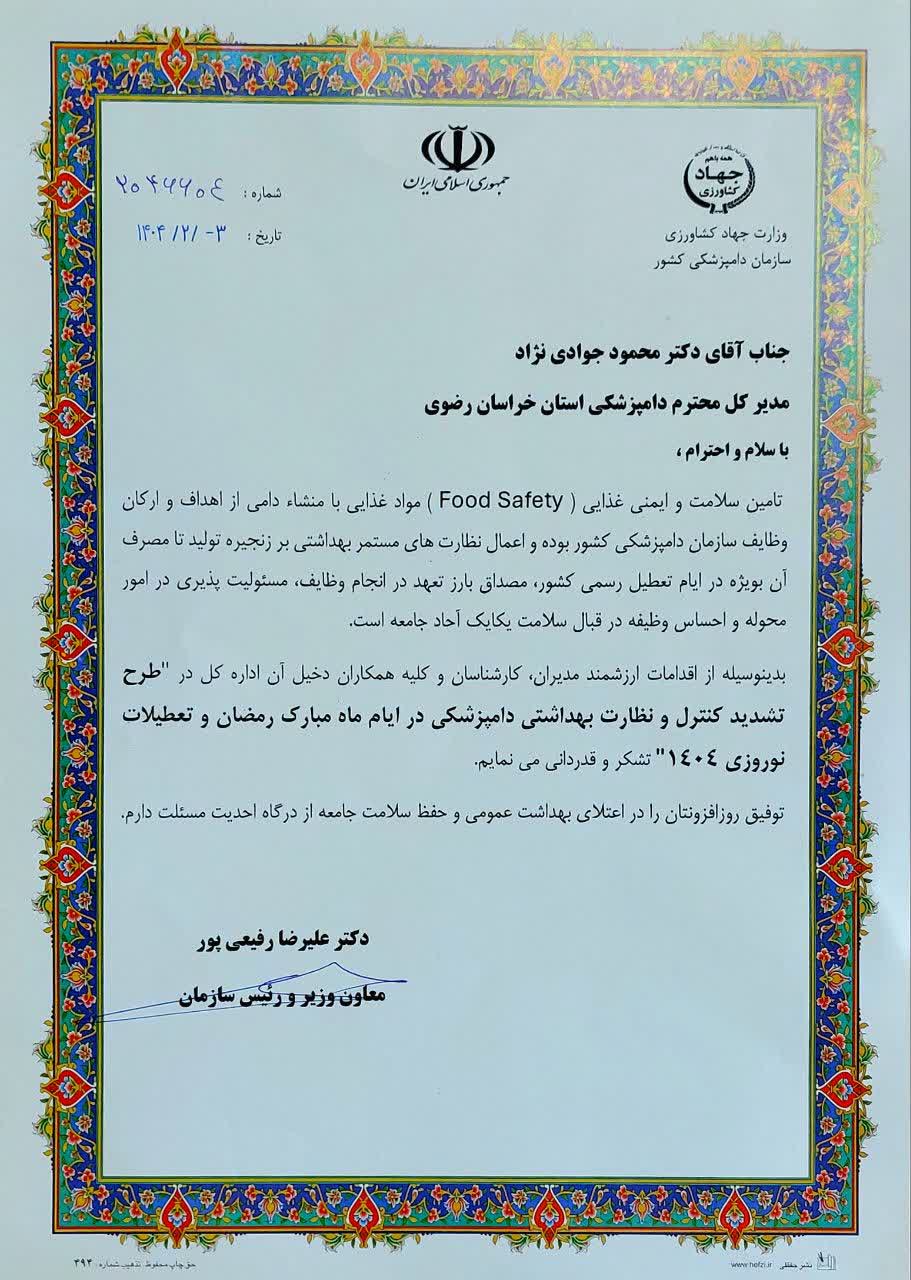 جمهوری اسلامی ایران
همه باهم
جهاد
کشاورزی
وزارت جهاد کشاورزی
سازمان دامپزشکی کشور
شماره :
تاریخ : ۱۴۰۴/۲/-۳
جناب آقای دکتر محمود جوادی نژاد
مدیر کل محترم دامپزشکی استان خراسان رضوی
با سلام و احترام ،
تامین سلامت و ایمنی غذایی ( Food Safety ) مواد غذایی با منشاء دامی از اهداف و ارکان
وظایف سازمان دامپزشکی کشور بوده و اعمال نظارت های مستمر بهداشتی بر زنجیره تولید تا مصرف
آن بویژه در ایام تعطیل رسمی کشور، مصداق بارز تعهد در انجام وظایف، مسئولیت پذیری در امور
محوله و احساس وظیفه در قبال سلامت یکایک آحاد جامعه است.
بدینوسیله از اقدامات ارزشمند مدیران، کارشناسان و کلیه همکاران دخیل آن اداره کل در "طرح
تشدید کنترل و نظارت بهداشتی دامپزشکی در ایام ماه مبارک رمضان و تعطیلات
نوروزی ۱۴۰۴" تشکر و قدردانی می نمایم.
توفیق روزافزونتان را در اعتلای بهداشت عمومی و حفظ سلامت جامعه از درگاه احدیت مسئلت دارم.
دکتر علیرضا رفیعی پور
معاون وزیر و رئیس سازمان
نشر حفظی www.hefzi.ir
حق چاپ محفوظ. تذهیب شماره: ۳۹۳